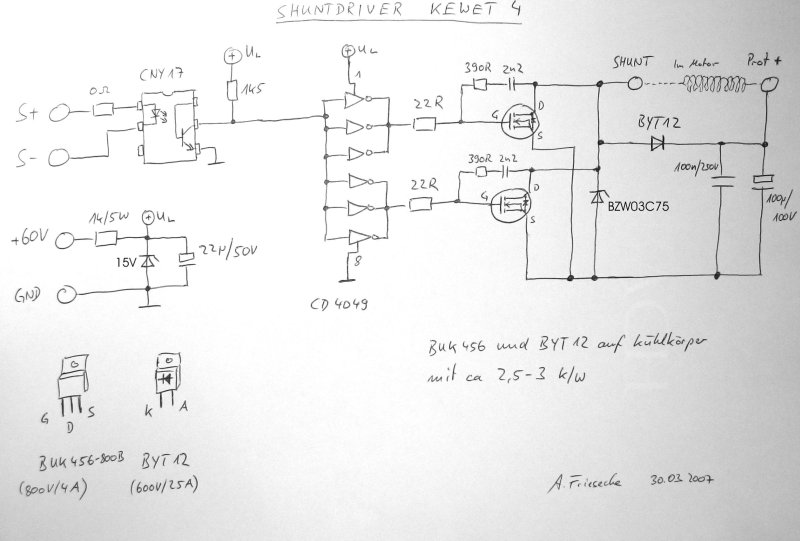 SHUNTDRIVER KEWET 4
CNY17
UL
1k5
0Ω
S+
S-
UL
1
8
CD4049
22R
22R
390R 2n2
390R 2n2
G
D
S
G
D
S
SHUNT
Im Motor
Prot +
BYT12
BZW03C75
100n/250V
100µ/
100V
+60V
GND
1k/5W
UL
15V
22µ/50V
G
D
S
BUK456-800B
(800V/4A)
K
A
BYT12
(600V/25A)
BUK456 und BYT12 auf Kühlkörper
mit ca 2,5-3 K/W
A. Friesecke 30.03.2007